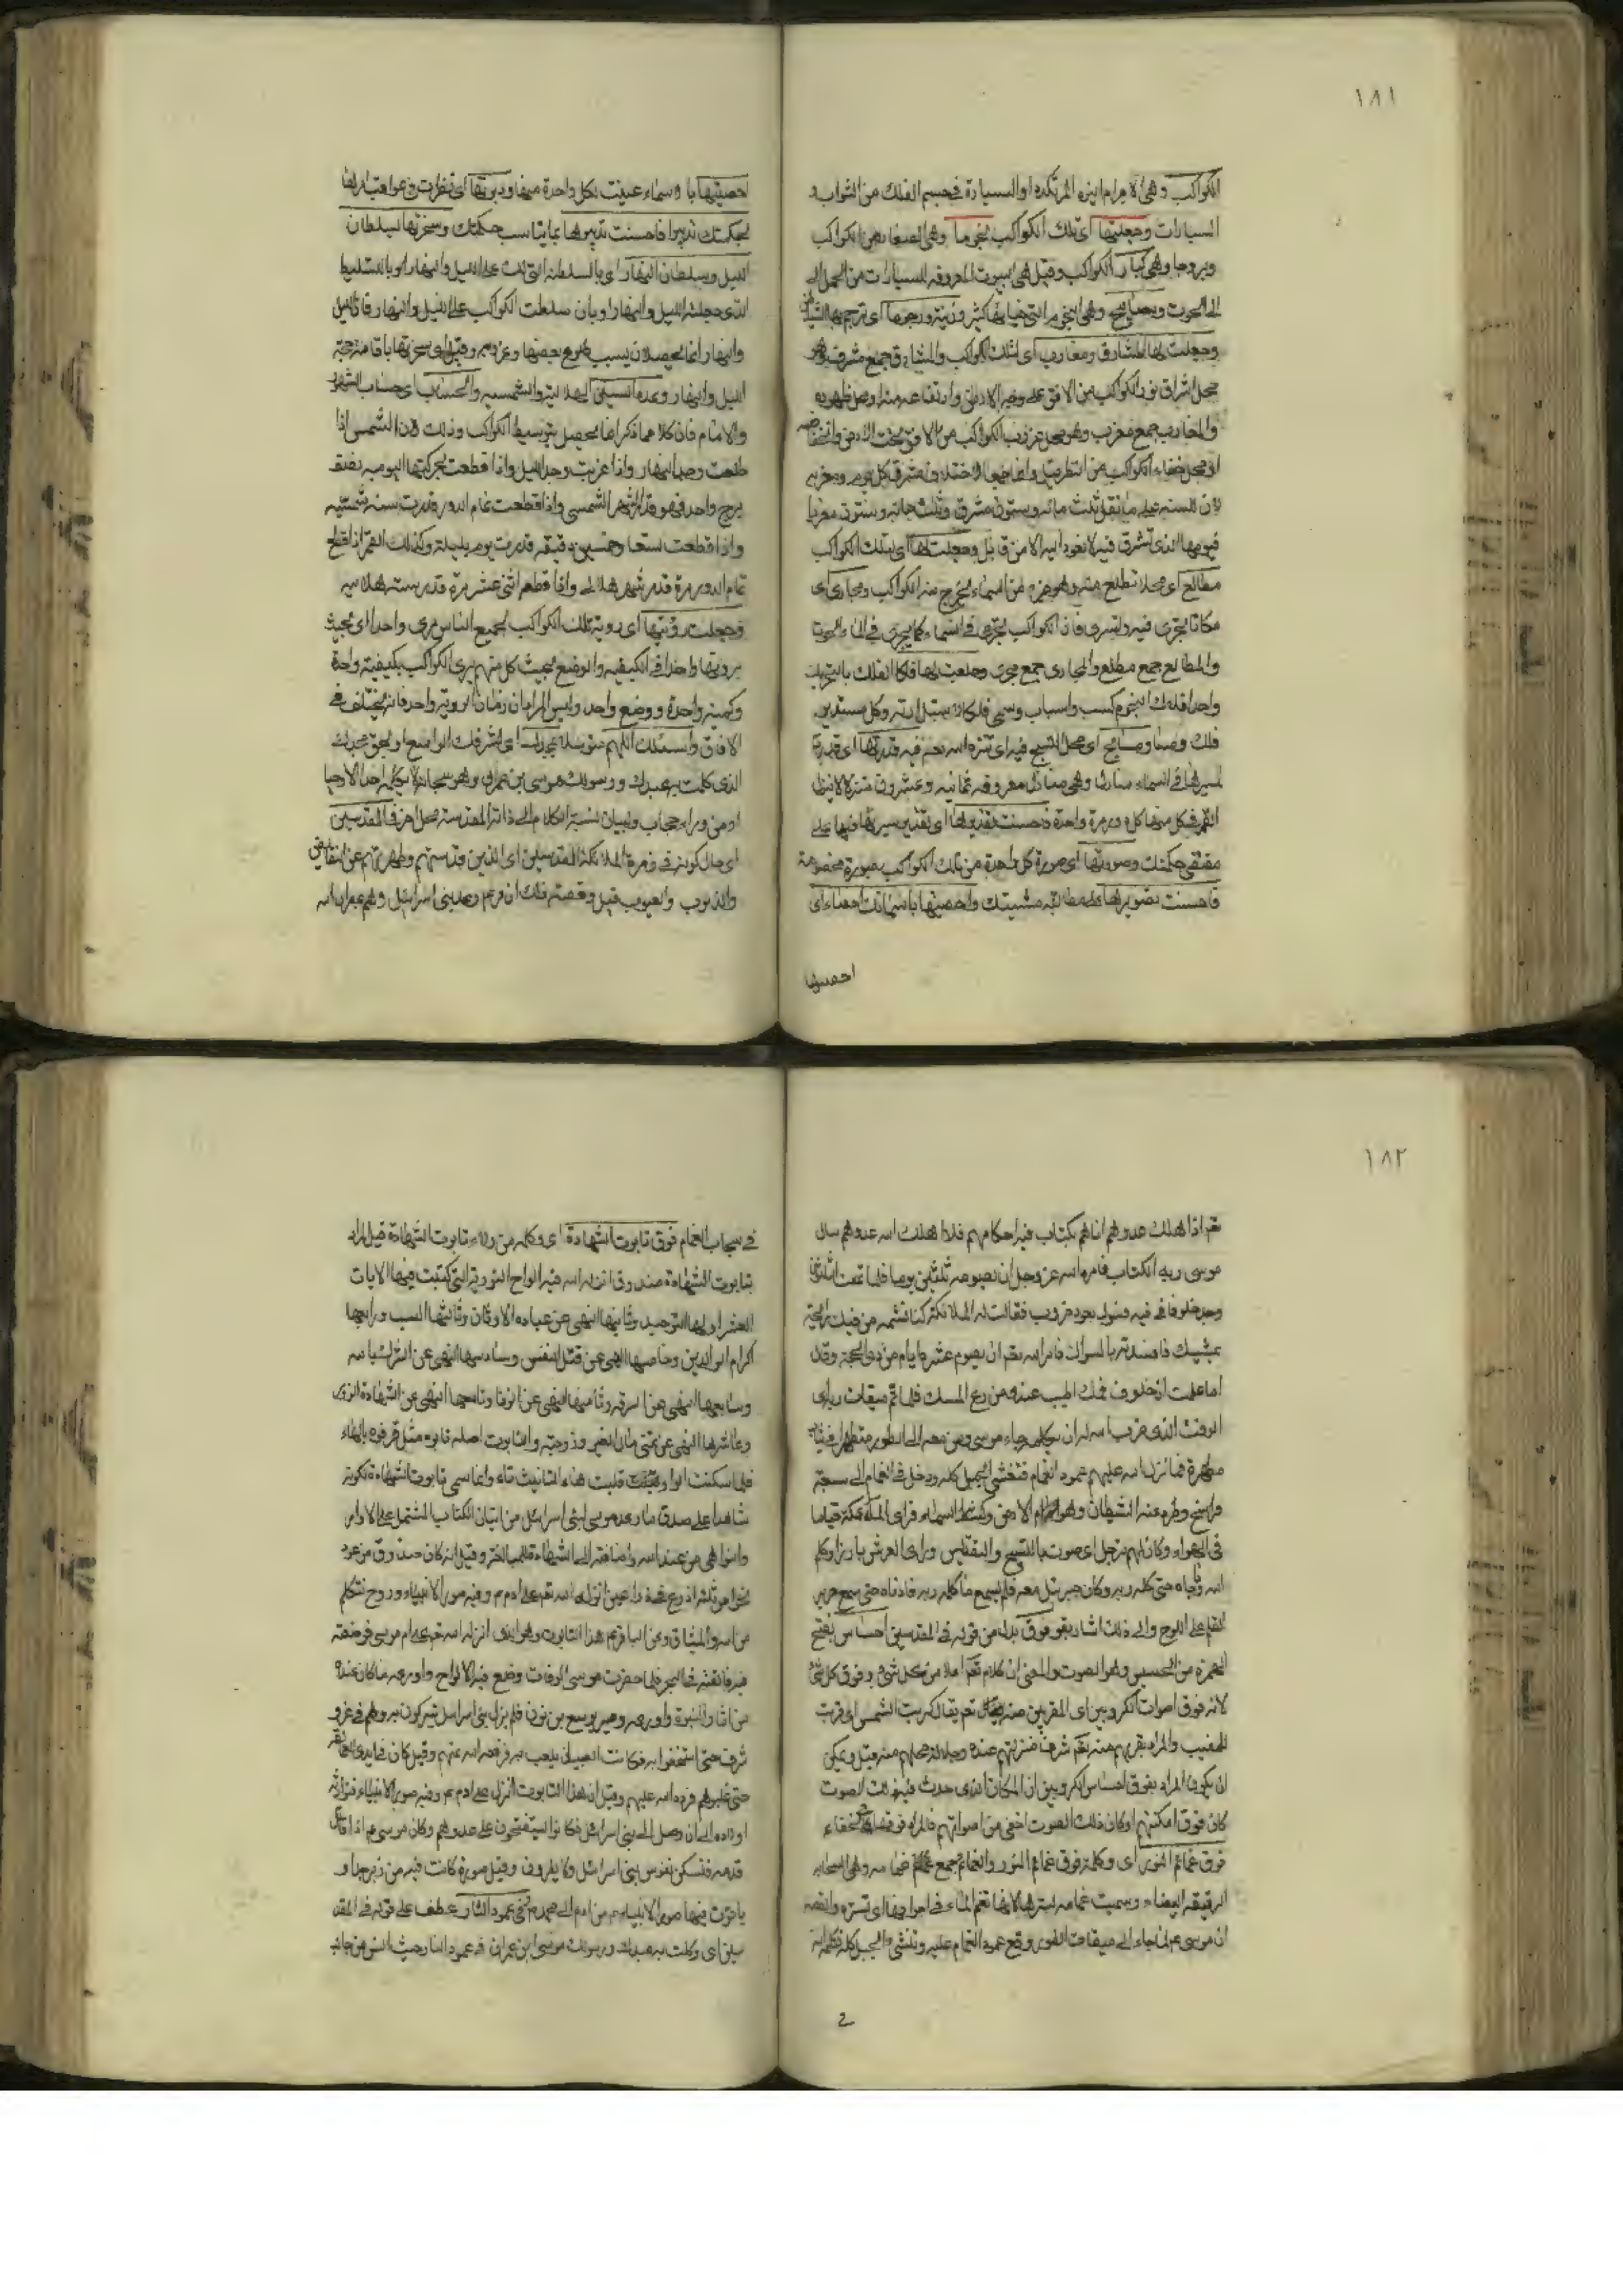 ١٨١
الكواكب وهي الاجرام المرتكزه او السيارة في جسم الفلك من الثوابت و
السيارات وجعلتها اى تلك الكواكب نجوما وهى الصغار من الكواكب
وبروجا وهى كبار الكواكب وقيل هى البيوت المعروفه للسيارات من الحمل الى
الحوت ومصابيح وهى النجوم التى ضياؤها كثير وزينة ورجوما اى ترجم بها الشياطين
وجعلت لها مشارق ومغارب اى لتلك الكواكب والمشارق جمع مشرق وهو
محل اشراق نور الكواكب من الافق على وجه الارض وارتفاعه منه او محل ظهوره
والمغارب جمع مغرب وهو محل غروب الكواكب من الافق تحت الارض وانخفاضه
او محل خفاء الكواكب عن النظر باختلاف مشرق كل يوم ومغربه
لان للسنه على ما نقل ثلث مائه وستون مشرق وثلث مائه وستون مغربا
فيومها الذى تشرق فيه لا تعود اليه الا من قابل وجعلت لها اى لتلك الكواكب
مطالع اى محلا تطلع منه وهو جزء من السماء يخرج منه الكواكب ومجارى اى
مكانا تجرى فيه وتسرى فان الكواكب تجرى فى السماء كما يجرى فى الماء الحوت
والمطالع جمع مطلع والمجارى جمع مجرى وجعلت لها فلكا الفلك بالتحريك
واحد افلاك النجوم كسبب واسباب وسمى فلكا لاستدارته وكل مستدير
فلك ومسابح اى محل التسبيح فيه اى تنزه الله تعم فيه وقدرتها اى قدرت
لسيرها فى السماء منازل وهى منازل معروفه ثمانيه وعشرون منزلا لا ينزل
القمر فى كل منها كل دوره مرة واحدة فاحسنت تقديرها اى تقدير سيرها فيها على
مقتضى حكمتك وصورتها اى صورة كل واحدة من تلك الكواكب بصورة مخصوصة
فاحسنت تصويرها على مطابقه مشيتك واحصيتها باسمائك احصاء اى
احصيتها
احصيتها با وسماء عينت لكل واحدة منها ودبرتها اى نظرت فى عواقب امرها
بحكمتك تدبيرا فاحسنت تدبيرها بما يناسب حكمتك وسخرتها بسلطان
الليل وسلطان النهار اى بالسلطنه التى لك على الليل والنهار او بالتسليط
الذى جعلته لليل والنهار او بان سلطت الكواكب على الليل والنهار فان الليل
والنهار انما يحصلان بسبب طلوع بعضها وغروبه وقيل اى سخرتها باقامة حجة
الليل والنهار وعدد السنين الهلاليه والشمسيه والحساب اى حساب الشهور
والايام فان كلا مما ذكر انما يحصل بتوسيط الكواكب وذلك لان الشمس اذا
طلعت وجد النهار واذا غربت وجد الليل واذا قطعت بحركتها اليوميه نصف
برج واحد فهو قدر الشهر الشمسى واذا قطعت تمام الدور قدرت سنه شمسيه
واذا قطعت تسعا وخمسين دقيقه قدرت يوم بليلته وكذلك القمر اذا قطع
تمام الدور مرة قدر شهر هلالى واذا قطعه اثنى عشر مرة قدر سنه هلاليه
وجعلت رؤيتها اى رويه تلك الكواكب لجميع الناس مرى واحدا اى بحيث
يرونها واحدا فى الكيفيه والوضع بحيث كل منهم يرى الكواكب بكيفيته واحدة
وكميته واحدة ووضع واحد وليس المراد ان زمان الرويه واحد فانه يختلف فى
الافاق واسئلك اللهم متوسلا بمجدك اى بشرفك الواسع او بحق مجدك
الذى كلمت به عبدك ورسولك موسى بن عمران وهو سبحانه لا يكلم احدا الا وحيا
او من وراء حجاب ولبيان نسبة الكلام الى ذاته المقدسه محل اخر فى المقدسين
اى حال كونه فى زمرة الملائكة المقدسين اى الذين قدستهم وطهرتهم عن النقائص
والذنوب والعيوب قيل وقصته ذلك ان موسى وعد بنى اسرائيل وهم بمصر ان الله
١٨٢
تعم اذا اهلك عدوهم اتاهم بكتاب فيه احكامهم فلما اهلك الله عدوهم سال
موسى ربه الكتاب فامره الله عز وجل ان يصوم ثلثين يوما فلما تمت الثلثون
وجد خلوفا فى فيه فتسوك بعود خروب فقالت له الملائكة كنا نشم من فيك رائحة
المسك فافسدته بالسواك فامر الله تعم ان يصوم عشرة ايام من ذى الحجة وقال
اما علمت ان خلوف فمك اطيب عندى من ريح المسك فلما تم ميقات ربه اى
الوقت الذى ضربه الله له ان يكلمه جاء موسى ومن معه الى الطور متطهرا فى ثياب
مطهرة فانزل الله عليهم عمود الغمام فتغشى الجبل كله ودخل فى الغمام الى سبعة
فراسخ وطرد عنه الشيطان وهوام الارض وكشط السماء فراى الملائكة قياما
فى الهواء وكان لهم زجل اى صوت بالتسبيح والتقديس وراى العرش بارزا وكلم
الله وناجاه حتى كلمه ربه وكان جبرئيل معه فلم يسمع ما كلمه ربه فادناه حتى سمع صرير
القلم على اللوح والى ذلك اشار بقوله فوق بدل من قوله فى المقدسين احساس بفتح
الهمزة من الحسيس وهو الصوت والمعنى ان كلام تعم اعلا من كل شىء وفوق كل شىء
لانه فوق اصوات الكروبين اى المقربين منه تعم يقال كربت الشمس اى قربت
للمغيب والمراد بقربهم منه تعم شرف منزلتهم عنده وجلالة محلهم منه قيل ويمكن
ان يكون المراد بفوق احساس الكروبين ان المكان الذى حدث فيه ذلك الصوت
كان فوق امكنتهم او كان ذلك الصوت اخفى من اصواتهم فالمراد فوقها فى الخفاء
فوق غمائم النور اى وكلمته فوق غمائم النور والغمائم جمع غمامه وهى السحابه
الرقيقه البيضاء وسميت غمامه لسترها لانها تغم الماء فى اجوافها اى تستره والقصه
ان موسى عم لما جاء الى ميقات الطور وقع عمود الغمام عليه وتغشى الجبل كله فكلم الله
فى سحاب الغمام فوق تابوت الشهادة اى وكلمه من وراء تابوت الشهادة قيل المراد
بتابوت الشهادة صندوق انزل الله فيه الواح التورية التى كتبت فيها الايات
العشر اولها التوحيد وثانيها النهى عن عباده الاوثان وثالثها السبت ورابعها
اكرام الوالدين وخامسها النهى عن قتل النفس وسادسها النهى عن الشرك بالله
وسابعها النهى عن السرقه وثامنها النهى عن الزنا وتاسعها النهى عن الشهادة الزور
وعاشرها النهى عن تمنى مال الغير وزوجته والتابوت اصله تابوه مثل ترقوه بالهاء
فلما سكنت الواو قلبت هاء التانيث تاء وانما سمى تابوت الشهادة لكونه
شاهدا على صدق ما وعد موسى لبنى اسرائيل من اتيان الكتاب المشتمل على الاوامر
والنواهى من عند الله واضافته الى الشهادة وقيل انه كان صندوق من عود
نحوا من ثلثة اذرع فى ذراعين انزله الله تعم على ادم عم وفيه صور الانبياء وروح تتكلم
من اسرار الميثاق وعن الباقر عم هذا التابوت وهو الذى انزله الله تعم على ام موسى فوضعته
فيه فالقته فى البحر فلما حضرت موسى الوفات وضع فيه الالواح واودعه ما كان عنده
من اثار النبوة واودعه وصيه يوشع بن نون فلم يزل بنى اسرائيل يتبركون به وهم فى عز و
شرف حتى استخفوا به فكانت الصبيان يلعب به فرفعه الله عنهم وقيل كان فى ايدى العمالقه
حتى غلبوهم فرده الله عليهم وقيل ان هذا التابوت انزل على ادم عم وفيه صور الانبياء فتوارثه
اولاده الى ان وصل الى بنى اسرائيل فكانوا يستفتحون على عدوهم وكان موسى عم اذا قاتل
قدمه فتسكن نفوس بنى اسرائيل ولا يفرون وقيل صورة كانت فيه من زبرجد او
ياقوت فيها صور الانبياء من ادم الى محمد وفى عمود النار عطف على قوله فى المقد
سين اى وكلمت به عبدك ورسولك موسى ابن عمران فى عمود النار حيث انس من جانب